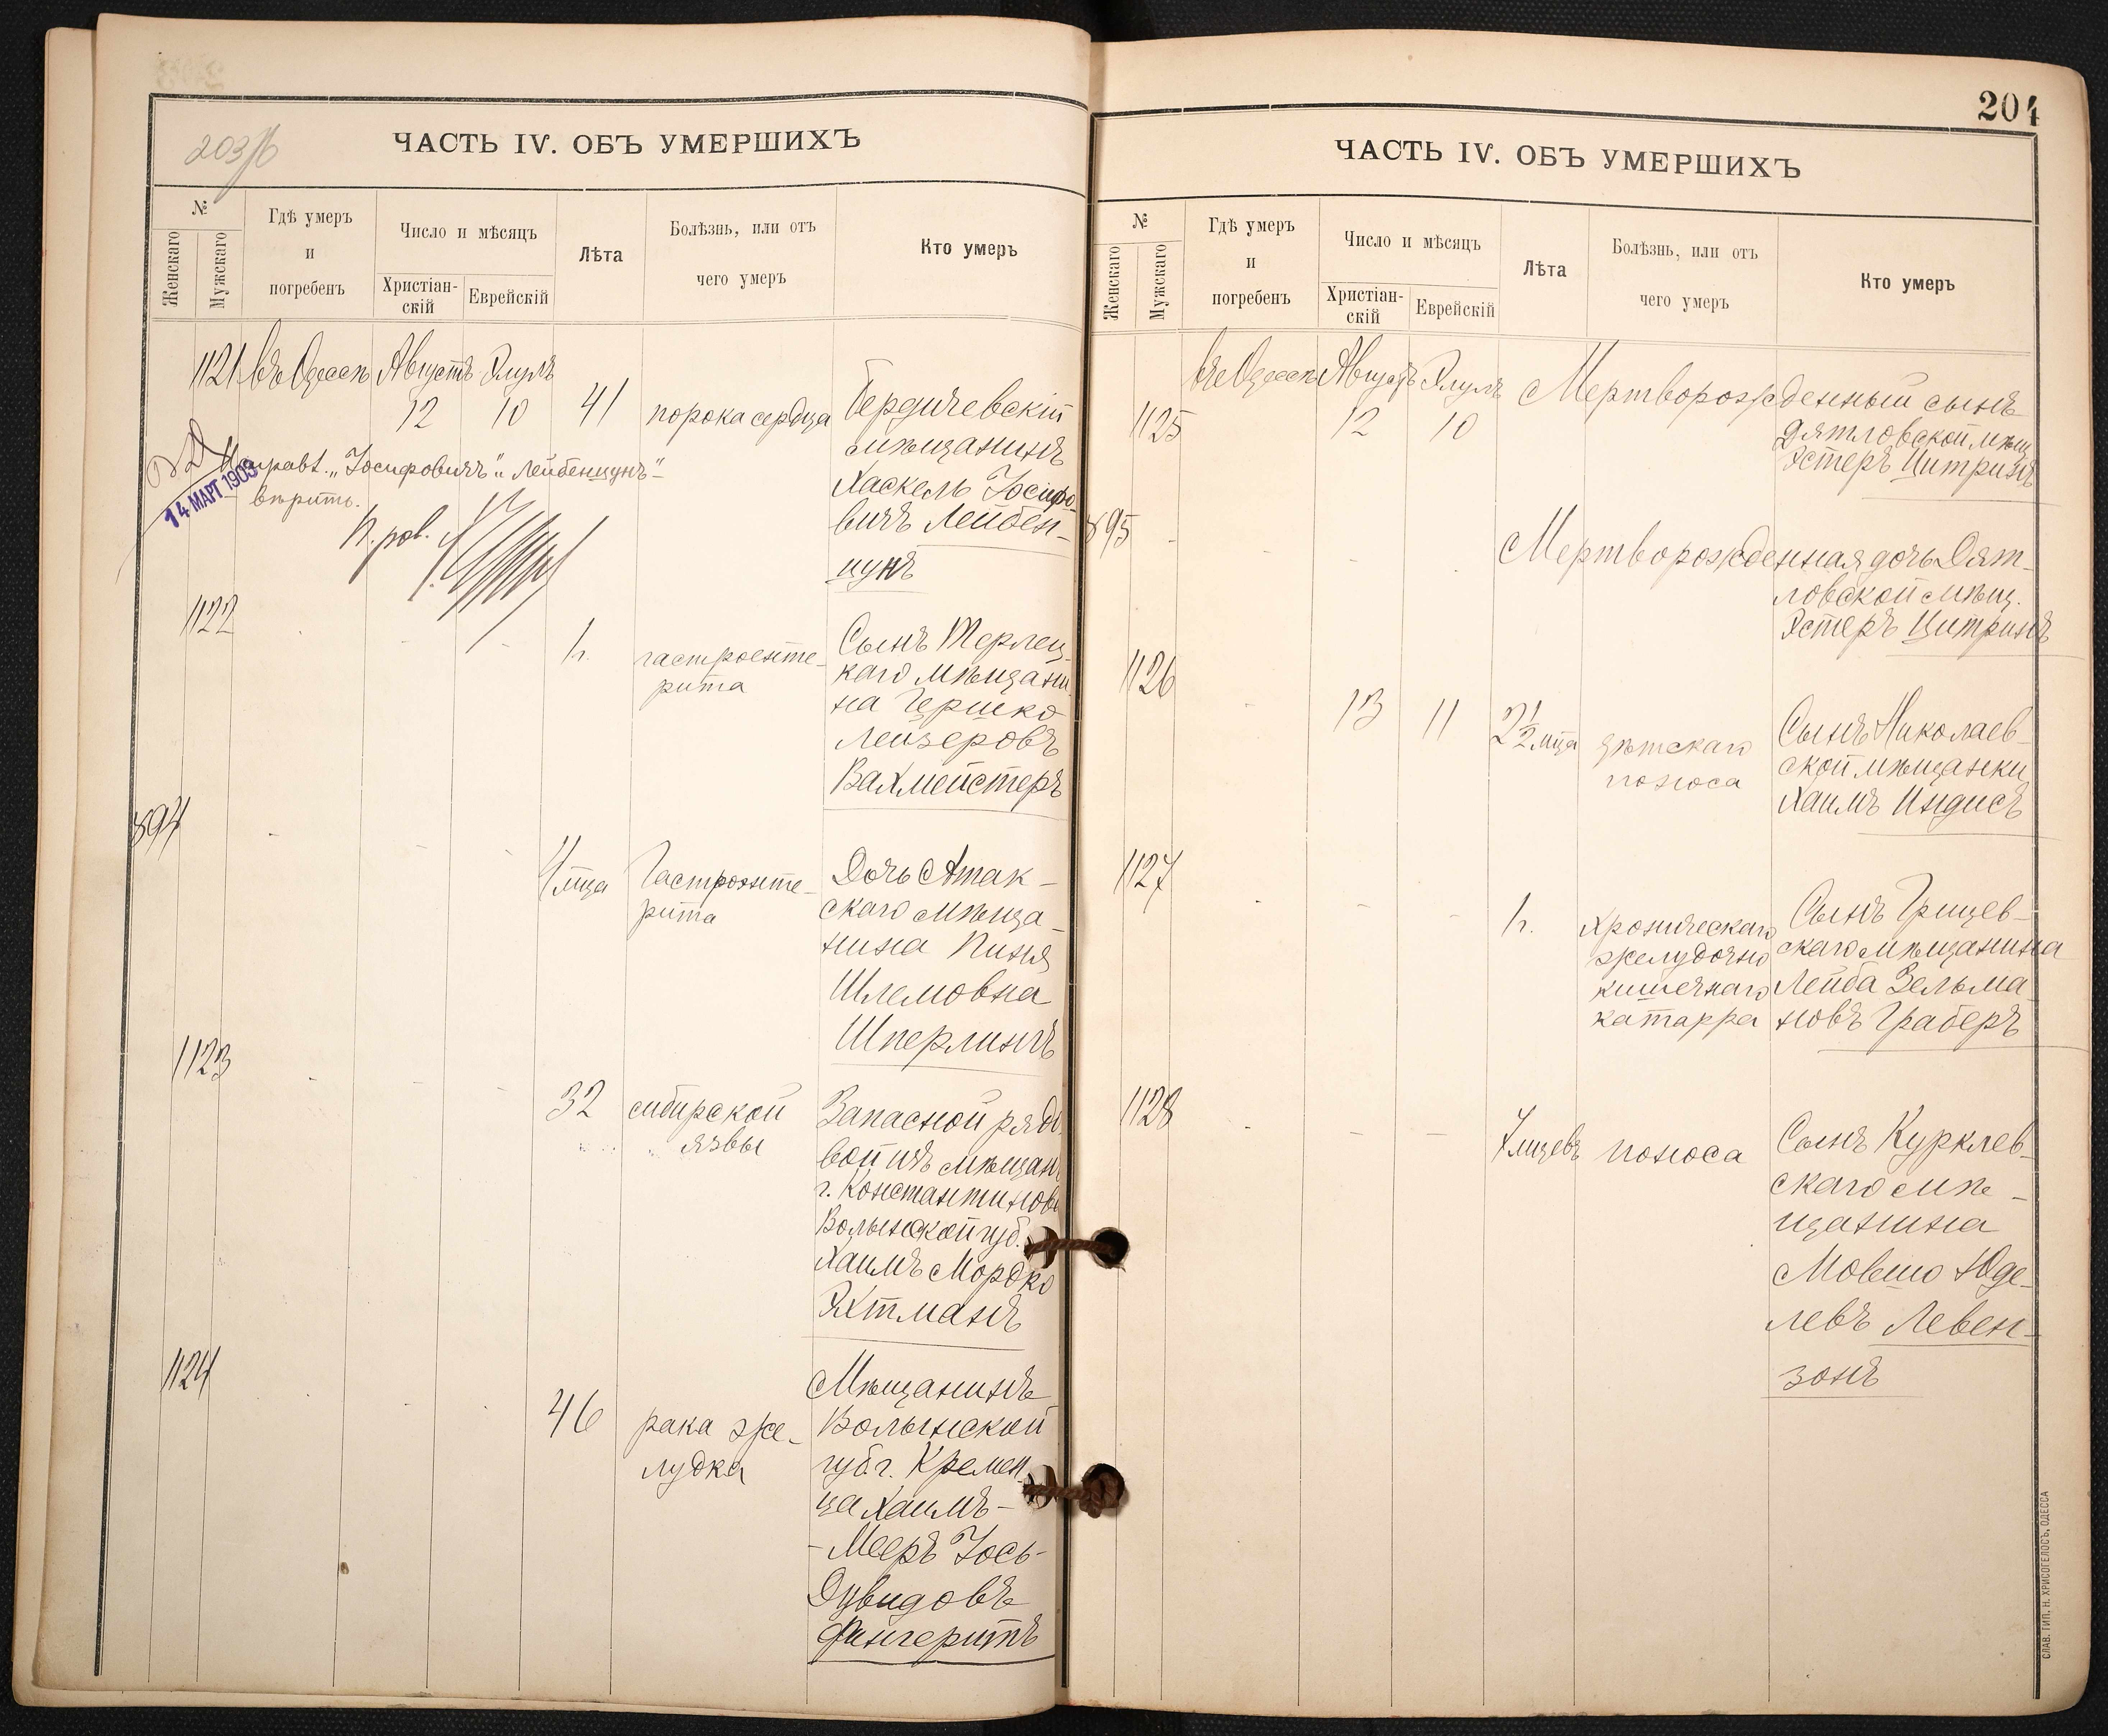 203/б
ЧАСТЬ IV. ОБЪ УМЕРШИХЪ
№
Женскаго
Мужскаго
Гдѣ умеръ
и
погребенъ
Число и мѣсяцъ
Христіан-
скій
Еврейскій
Лѣта
Болѣзнь, или отъ
чего умеръ
Кто умеръ
1121 въ Одессѣ Августъ Элулъ
12 10 41 порока сердца Бердичевскій
мѣщанинъ
Хаскель Іосифо-
вичъ Лейбен-
цунъ
Исправл. „Іосифовичъ" и „Лейбенцунъ" -
вѣрить.
14 МАРТ 1903
П. рав.
1122
1 г. гастроенте-
рита
Сынъ Терлец-
каго мѣщани-
на Гершко
Лейзеровъ
Вахмейстеръ
894
4 мца Гастроэнте-
рита
Дочь Атак-
скаго мѣща-
нина Пиня
Шлемовна
Шперлингъ
1123
32 сибирской
язвы
Запасной рядо-
вой изъ мѣщан
г. Константинов
Волынской губ.
Хаимъ Мордко
Эхтманъ
1124
46 рака же-
лудка
Мѣщанинъ
Волынской
губ. г. Кремен-
ца Хаимъ-
-Мееръ Іось-
Дувидовъ
Фингеритъ
204
ЧАСТЬ IV. ОБЪ УМЕРШИХЪ
№
Женскаго
Мужскаго
Гдѣ умеръ
и
погребенъ
Число и мѣсяцъ
Христіан-
скій
Еврейскій
Лѣта
Болѣзнь, или отъ
чего умеръ
Кто умеръ
въ Одессѣ Августъ Элулъ
1125 12 10 Мертворожденный сынъ
Дятловской мѣщ.
Эстеръ Цитринъ
895
Мертворожденная дочь Дят-
ловской мѣщ.
Эстеръ Цитринъ
1126
13 11 2½ мца дѣтскаго
поноса
Сынъ Николаев-
ской мѣщанки
Хаимъ Индисъ
1127
1 г. хроническаго
желудочно
кишечнаго
катарра
Сынъ Грицев-
скаго мѣщанина
Лейба Зельма-
новъ Граберъ
1128
7 мцевъ поноса
Сынъ Курклев-
скаго мѣ-
щанина
Мовшо Юде-
левъ Левен-
зонъ
СЛАВ. ТИП. Н. ХРИСОГЕЛОСЪ, ОДЕССА